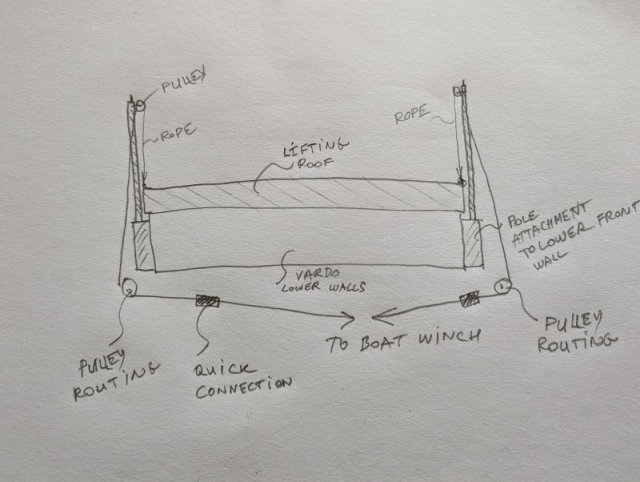 PULLEY
ROPE
ROPE
LIFTING
ROOF
POLE
ATTACHMENT
TO LOWER FRONT
WALL
VARDO
LOWER WALLS
TO BOAT WINCH
PULLEY
ROUTING
QUICK
CONNECTION
PULLEY
ROUTING